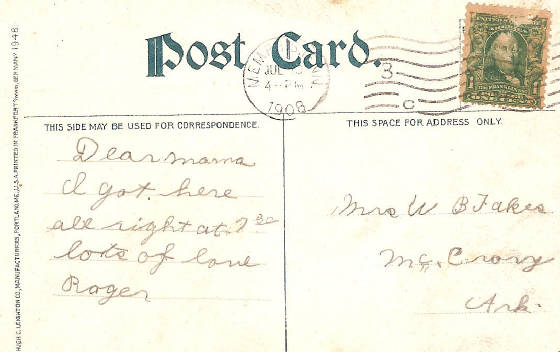 Post Card.
MEM
JUL
4 PM
1908
3
C
1
THIS SIDE MAY BE USED FOR CORRESPONDENCE.
THIS SPACE FOR ADDRESS ONLY.
Dear mama
I got. here
all right at 7 30
lots of love
Roger
Mrs W B Fakes
Mc Crory
Ark.
HUGH C. LEIGHTON CO., MANUFACTURERS, PORTLAND, ME., U.S.A. PRINTED IN FRANKFORT
GERMANY
1948